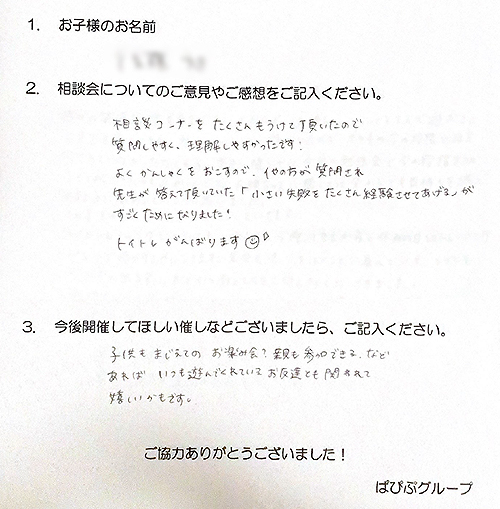 1. お子様のお名前
2. 相談会についてのご意見やご感想をご記入ください。
相談コーナーをたくさんもうけて頂いたので
質問しやすく、理解しやすかったです!
よくかんしゃくをおこすので、他の方が質問され
先生が答えて頂いていた「小さい失敗をたくさん経験させてあげる」が
すごくためになりました!
トイトレがんばります
3. 今後開催してほしい催しなどございましたら、ご記入ください。
子供もまじえてのお楽み会?親も参加できる、など
あれば いつも遊んでくれているお友達とも関われて
嬉しいかもです。
ご協力ありがとうございました!
ぱぴぷグループ